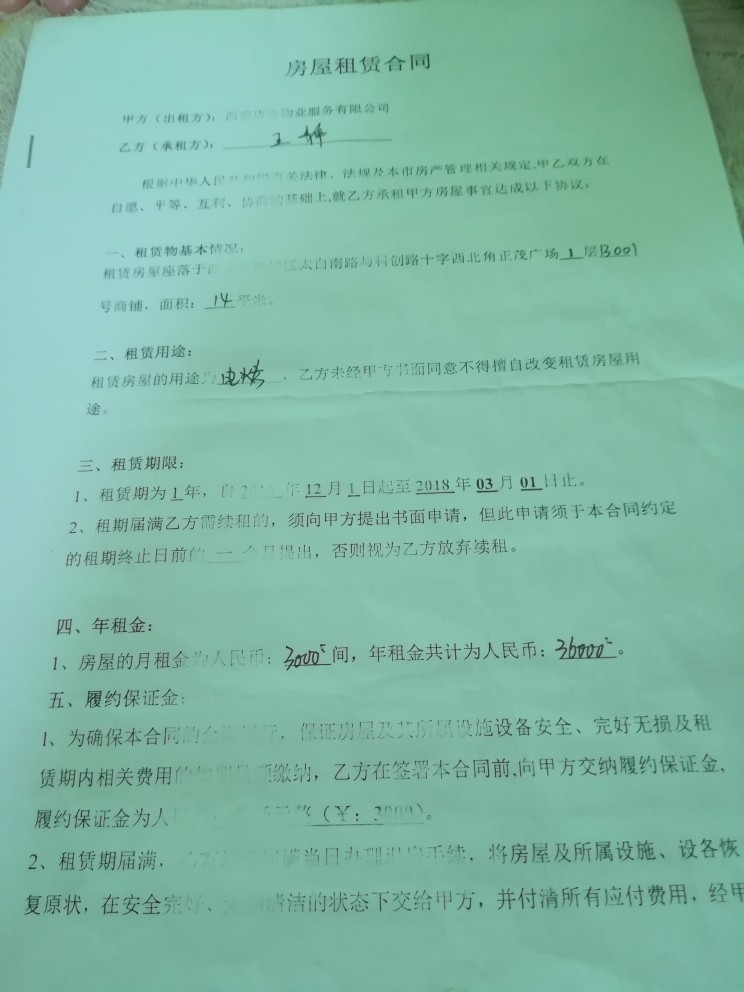 房屋租赁合同
甲方（出租方）：物业服务有限公司
乙方（承租方）：王静
根据中华人民共和国有关法律、法规及本市房产管理相关规定,甲乙双方在
自愿、平等、互利、协商的基础上,就乙方承租甲方房屋事宜达成以下协议：
一、租赁物基本情况：
租赁房屋座落于区太白南路与科创路十字西北角正茂广场1层B001
号商铺，面积：14平米。
二、租赁用途：
租赁房屋的用途为，乙方未经甲方书面同意不得擅自改变租赁房屋用
途。
三、租赁期限：
1、租赁期为1年，自年12月1日起至2018年03月01日止。
2、租期届满乙方需续租的，须向甲方提出书面申请，但此申请须于本合同约定
的租期终止日前的一个月提出，否则视为乙方放弃续租。
四、年租金：
1、房屋的月租金为人民币：3000间，年租金共计为人民币：36000。
五、履约保证金：
1、为确保本合同的，保证房屋及其所属设施设备安全、完好无损及租
赁期内相关费用的缴纳，乙方在签署本合同前,向甲方交纳履约保证金,
履约保证金为人（￥：3000）。
2、租赁期届满，乙方满当日办理退房手续，将房屋及所属设施、设备恢
复原状，在安全完好、清洁的状态下交给甲方，并付清所有应付费用，经甲